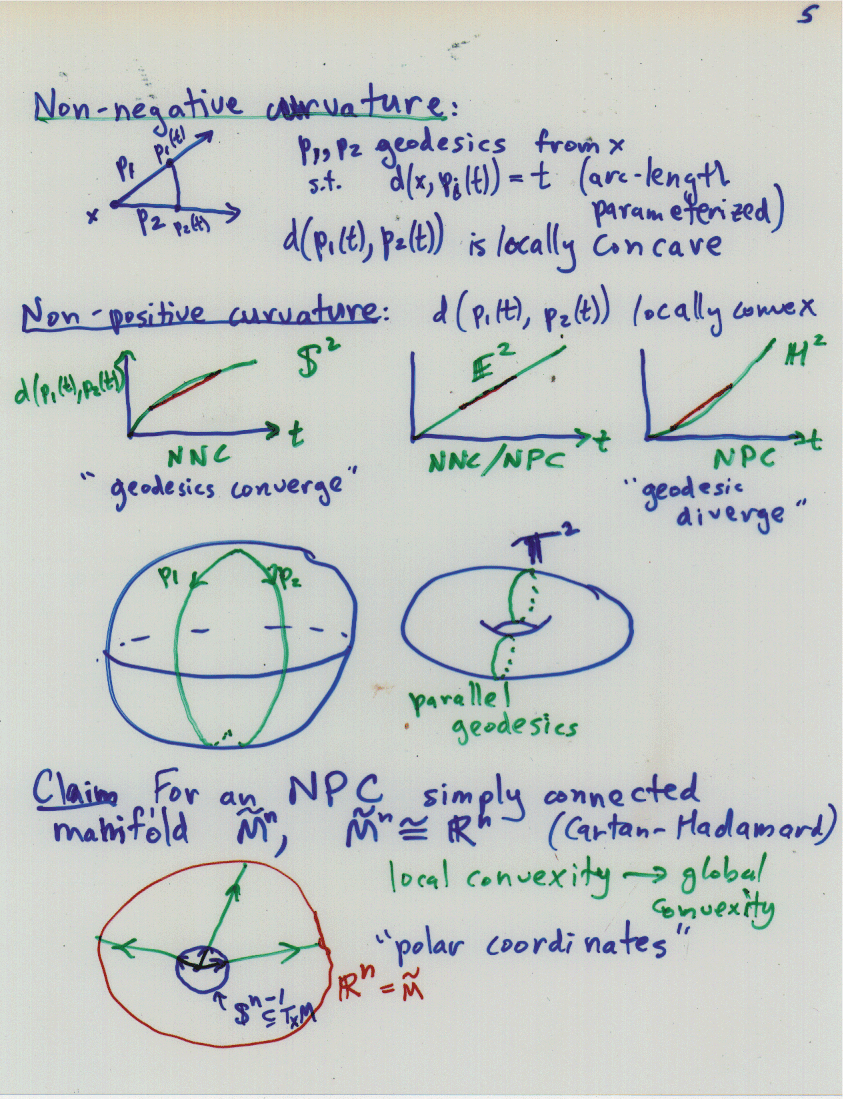 5
Non-negative curvature:
p₁(t)
p₁
x
p₂
p₂(t)
p₁, p₂ geodesics from x
s.t. d(x, pᵢ(t)) = t (arc-length
parameterized)
d(p₁(t), p₂(t)) is locally concave
Non-positive curvature: d(p₁(t), p₂(t)) locally convex
d(p₁(t), p₂(t))
𝕊²
t
NNC
"geodesics converge"
𝔼²
t
NNC/NPC
ℍ²
t
NPC
"geodesic
diverge"
p₁
p₂
𝕋²
parallel
geodesics
Claim For an NPC simply connected
manifold M̃ⁿ, M̃ⁿ ≅ ℝⁿ (Cartan-Hadamard)
local convexity → global
convexity
"polar coordinates"
ℝⁿ = M̃
𝕊ⁿ⁻¹ ⊆ TₓM